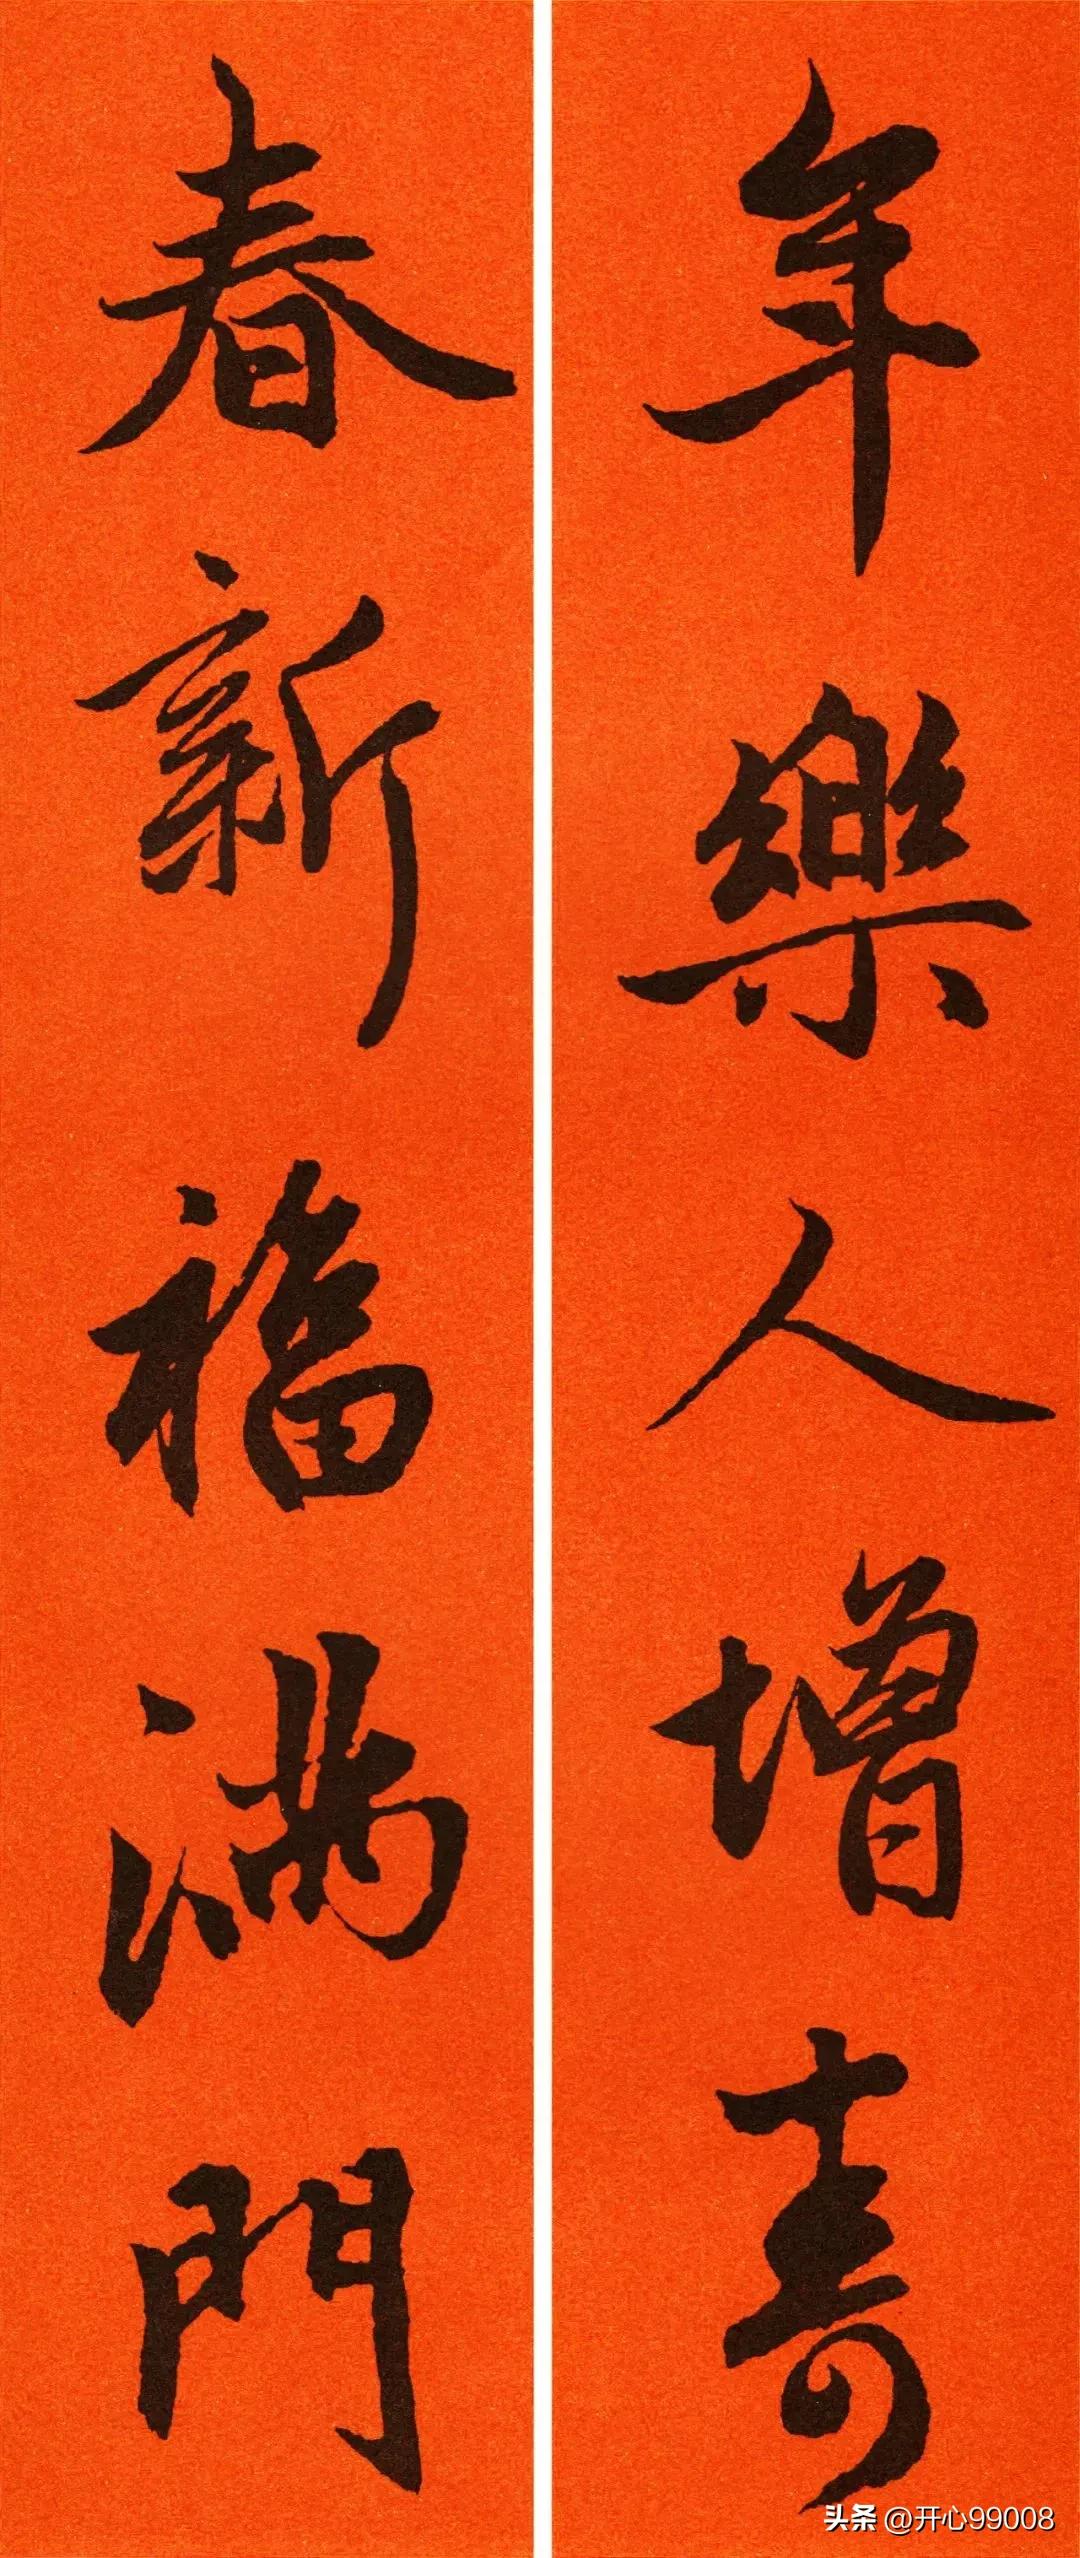 年樂人增壽
春新福滿門
头条 @开心99008